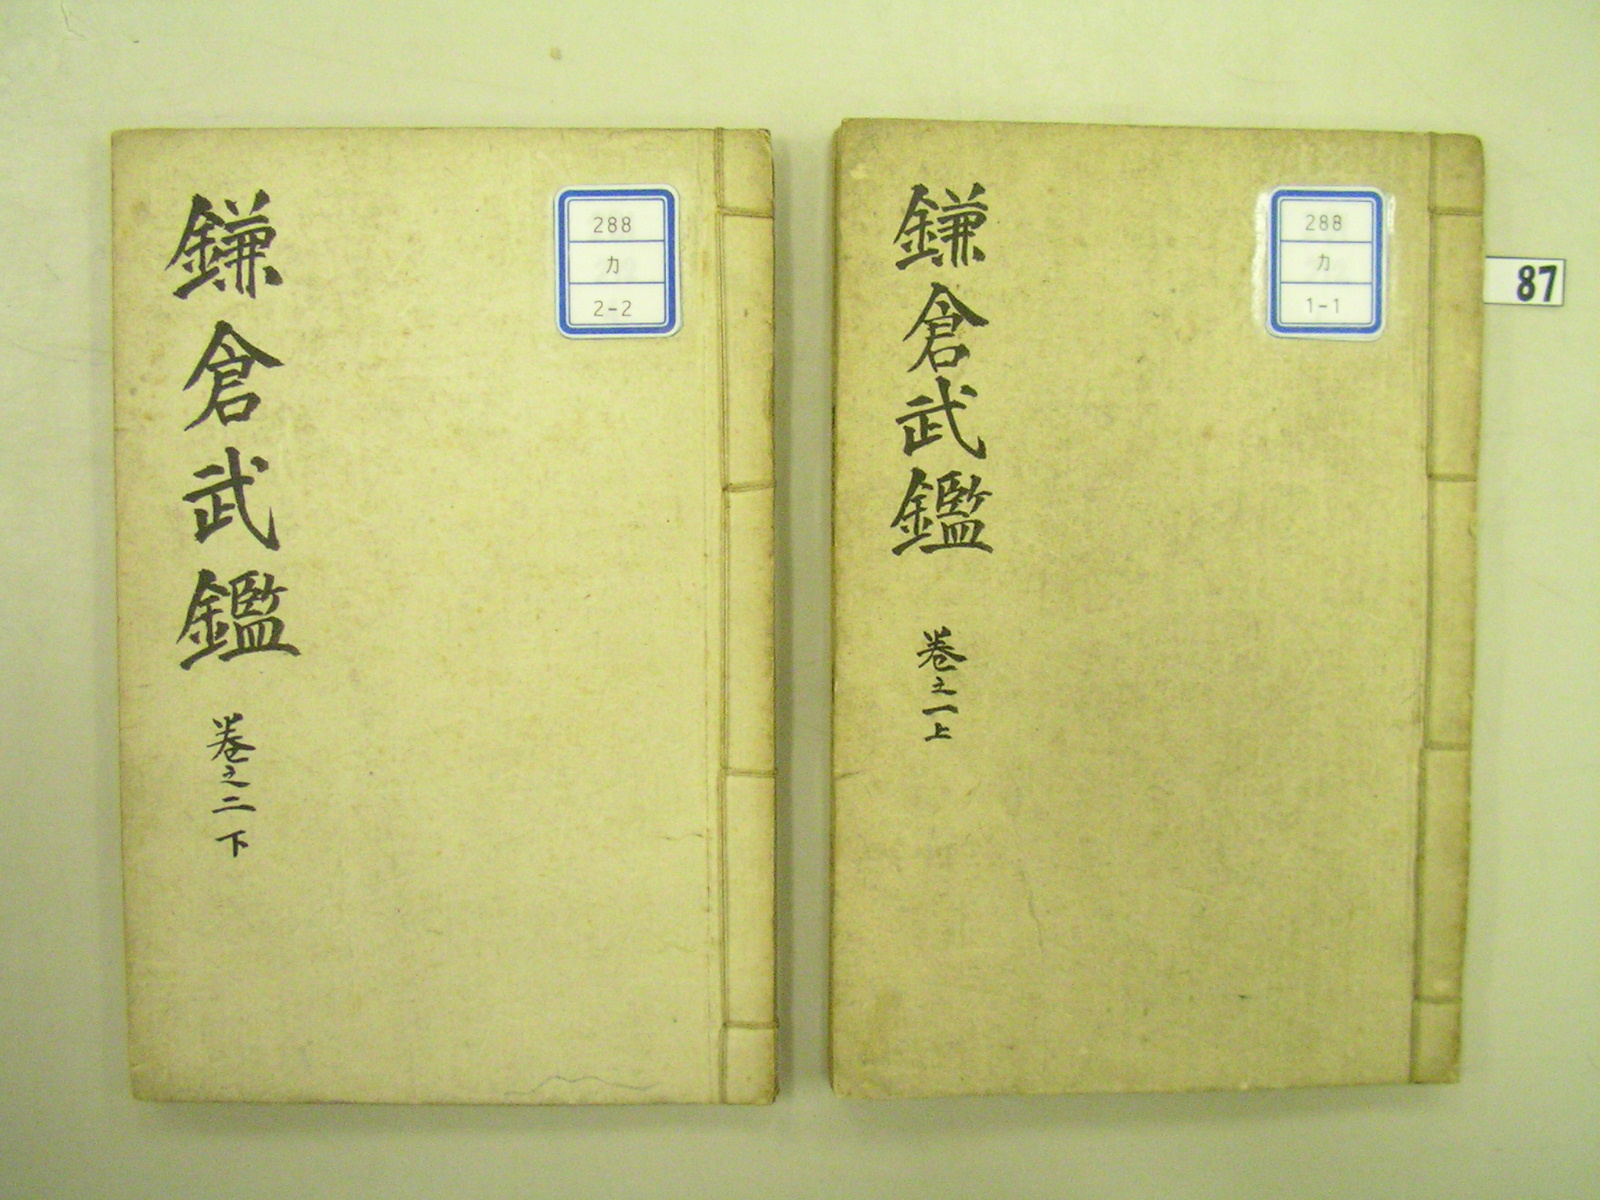 鎌倉武鑑 巻之二下
288
カ
2-2
鎌倉武鑑 巻之一上
288
カ
1-1
87